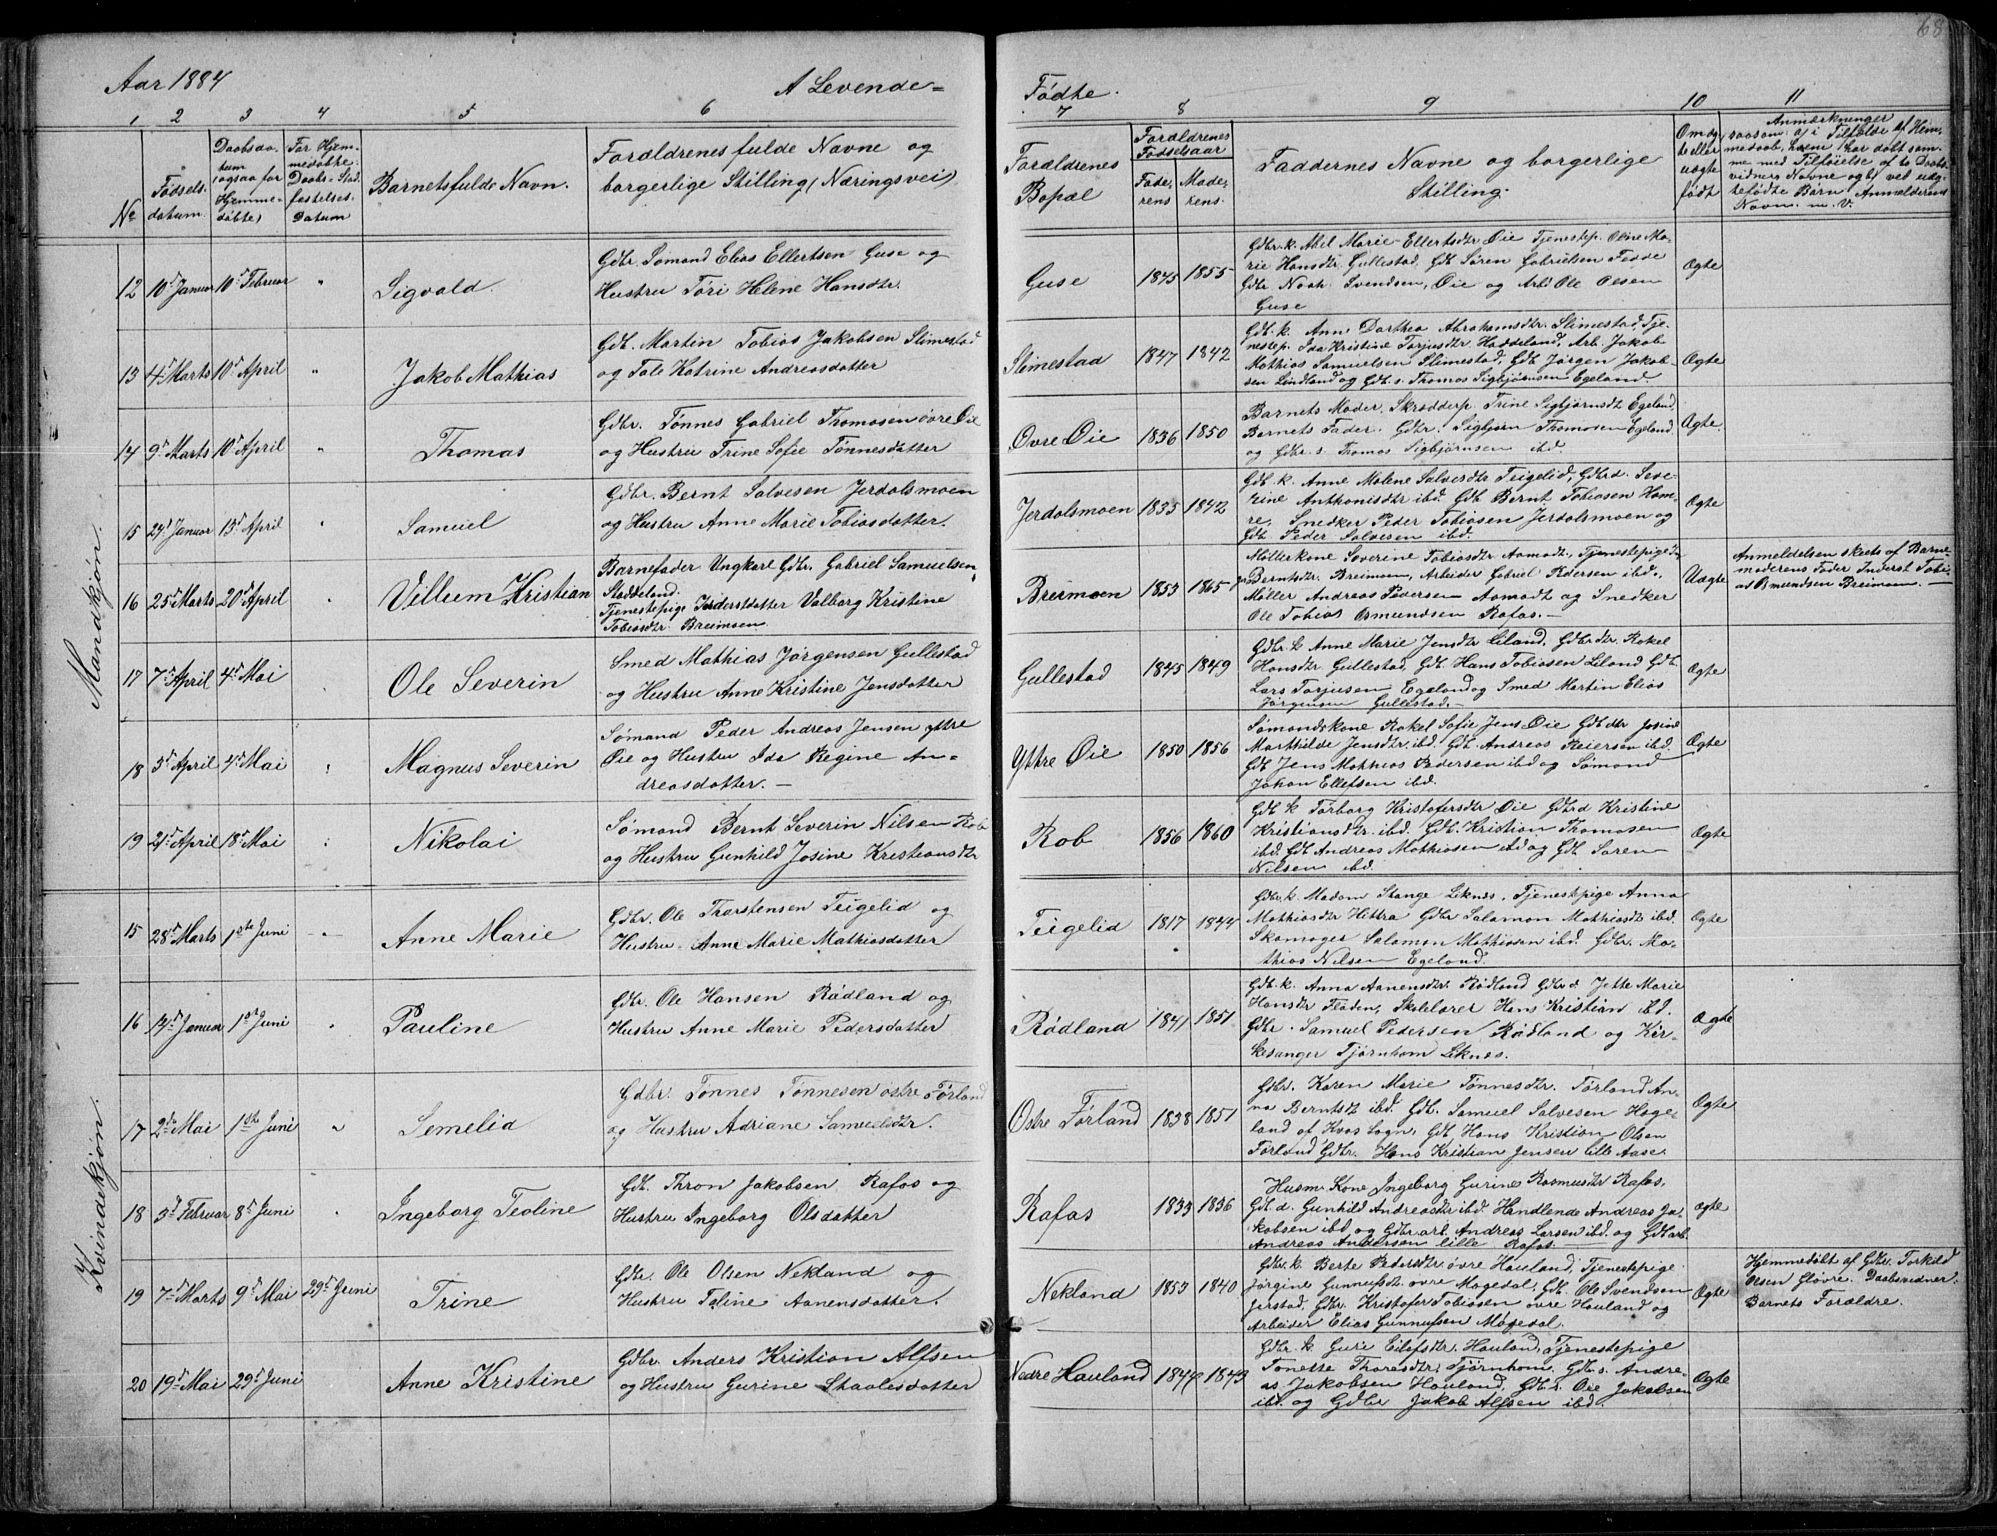 68
Aar 1884
A Levende=
Fødte.
1 2 3 4 5 6 7 8 9 10 11
No
Fødsels-
datum.
Daabsda-
tum
(ogsaa for
Hjemme-
døbte)
For Hjem-
medøbte:
Daabs-Stad-
fæstelses-
Datum
Barnetsfulde Navn.
Forældrenes fulde Navne og
borgerlige Stilling (Næringsvei)
Forældrenes
Bopæl
Forældrenes
Fødselsaar
Fade-
rens
Mode-
rens.
Faddernes Navne og borgerlige
Stilling.
Om æg-
te eller
uægte
født
Anmærkninger
saasom: a) i Tilfælde af Hjem-
medaab, hvem har døbt sam-
me med Tilføielse af to Daabs-
vidners Navne og b) ved uæg-
tefødte Børn Anmelderens
Navn. m. v.
Mandkjøn.
12 10d Januar 10d Februar " Sigvald.
Gdbr. Sømand Elias Ellertsen Guse og
Hustru Tøri Helene Hansdtr.
Guse 1845 1855
Gdbr. k. Abel Marie Ellertsdtr Øie Tjenestep. Oline Ma-
rie Hansdtr. Gullestad, Gdb. Søren Gabrielsen Fedde
Gdbr Noah Svendsen, Øie og Arb. Ole Olsen
Guse
Ægte
13 4d Marts 10d April " Jakob Mathias
Gdb. Martin Tobias Jakobsen Slimestad
og Tale Katrine Andreasdatter
Slimestad 1847 1842
Gdb. k. Anne Dorthea Abrahamsdtr. Slimestad, Tje-
nestep. Ida Kristine Torjusdtr Haddeland, Arb. Jakob
Mathias Samuelsen Slimestad, Gdb Jørgen Jakob-
sen Lindland og Gdb. s. Thomas Sigbjørnsen Egeland.
Ægte
14 9d Marts 10d April " Thomas
Gdbr. Tønnes Gabriel Tromosen øvre Øie
og Hustru Trine Sofie Tønnesdatter
Øvre Øie 1836 1850
Barnets Moder, Skrædderp. Trine Sigbjørnsdt Egeland,
Barnets Fader. Gdbr. Sigbjørn Thomasen Egeland
og Gdbr. s. Thomas Sigbjørnsen ibd.
Ægte.
15 24d Januar 13d April " Samuel
Gdbr. Bernt Salvesen Jerdalsmoen
og Hustru Anne Marie Tobiasdatter.
Jerdalsmoen 1833 1842
Gdb. k. Anne Malene Salvesdtr Teigelid, Gdbrd. Seve-
rine Anthonisdtr ibd. Gdb Bernt Tobiasen Hom-
re. Snedker Peder Tobiasen Jerdalsmoen og
Gdb Peder Salvesen ibd.
Ægte
16 25d Marts 20d April Villum Kristian
Barnefader Ungkarl Gdbr. Gabriel Samuelsen
Staddeland.
Tjenestepige Inderstdatter Valborg Kristine
Tobiasdtr. Breimoen
Breimoen 1853 1865
Møllerkone Severine Tobiasdtr Aamodt, Tjenestepige
Berntsdtr. Breimoen, Arbeider Gabriel Pedersen ibd.,
Møller Andreas Pedersen Aamodt og Snedker
Ole Tobias Osmundsen Rafos.—
Uægte
Anmeldelsen skeets af Barne-
moderens Fader Inderst Tobi-
as Osmundsen Breimoen.—
17 7d April 4d Mai Ole Severin
Smed Mathias Jørgensen Gullestad
og Hustru Anne Kristine Jensdatter
Gullestad 1845 1849
Gdbr. k Anne Marie Jensdtr Liland. Gdbr dtr Rakel
Hansdtr Gullestad, Gdb. Hans Tobiasen Liland Gdb.
Lars Torjusen Egeland og Smed Martin Elias
Jørgensen Gullestad.—
Ægte
18 3d April 4d Mai Magnus Severin
Sømand Peder Andreas Jensen yttre
Øie og Hustru Ida Regine An-
dreasdatter.—
Yttre Øie 1850 1856
Sømandskone Rakel Sofie Jens Øie Gdb. dtr Josine
Marthilde Jensdtr. ibd. Gdb. Andreas Reiersen ibd.
Gdb Jens Mathias Pedersen ibd og Sømand
Johan Ellefsen ibd.
Ægte
19 21d April 18d Mai Nikolai
Sømand Bernt Severin Nilsen Rob
og Hustru Gunhild Josine Kristiansdtr
Rob 1856 1860
Gdb. k Torborg Kristofersdtr Øie Gdbrd Kristine
Kristiansdtr. ibd. Gdb. Kristian Thomasen
ibd. Gdb Andreas Mathiasen ibd og Gdb. Søren
Nilsen ibd.
Ægte
Kvindekjøn.
15 28d Marts 1ste Juni Anne Marie
Gdbr. Ole Thorstensen Teigelid og
Hustru Anne Marie Mathiasdatter
Teigelid 1817 1844
Gdbr. k. Madam Stange Liknes, Tjenestepige Anna
Mathiasdtr Hittra Gdbr Salamon Mathiasdt ibd.
Skomager Salamon Mathiasen ibd. Gdbr. Ma-
thias Nilsen Egeland.
Ægte
16 14d Januar 1ste Juni Pauline
Gdbr. Ole Hansen Rødland og
Hustru Anne Marie Pedersdatter
Rødland 1841 1851
Gdb. k. Anna Aanensdtr. Rødland Gdbr d Jette Marie
Hansdtr Floden, Skolelærer Hans Kristian ibd.
Gdbr. Samuel Pedersen Rødland og Kir-
kesanger Tjørnhom Liknes.
Ægte
17 2den Mai 1ste Juni " Semelid
Gdbr. Tønnes Tønnesen østre Førland
og Hustru Adriane Samueldtr.
Østre Førland 1838 1851
Gdbr. Karen Marie Tønnesdtr. Førland An-
na Berntsdt ibd. Gdb. Samuel Salvesen Hage-
land af Kvas Sogn, Gdb. Hans Kristian Olsen
Førland Gdbr. Hans Kristian Jensen lille Aase.
Ægte
18 3d Februar 8d Juni Ingeborg Teoline
Gdb. Thron Jakobsen Rafos og
Hustru Ingeborg Olsdatter
Rafos 1833 1836
Husm. Kone Ingeborg Gurine Rasmusdtr Rafos,
Gdb. d. Gunhild Andreasdtr ibd Handlende Andreas Ja-
kobsen ibd og Gdbr arb. Andreas Larsen ibd. og Gdb arb.
Andreas Andersen lille Rafos.—
Ægte
19 7d Marts 9d Mai 29d Juni Trine
Gdbr. Ole Olsen Nekland og
Hustru Taline Aanensdatter.
Nekland 1853 1840
Gdbr. k Berte Pedersdtr øvre Hauland, Tjenestepige
Jørgine Gunnufsdt. øvre Møgedal, Gdb. Ole Svendsen
Jerstad, Gdbr. Kristofer Tobiasen øvre Hauland og
Arbeider Elias Gunnufsen Møgedal.
Ægte
Hjemmedøbt af Gdbr. Torkild
Olsen Fløvre. Daabsvidner
Barnets Forældre.
20 19d Mai 29d Juni Anne Kristine
Gdbr. Anders Kristian Alfsen
og Hustru Gurine Staalesdatter
Nedre Hauland 1844 1843
Gdbr. k Guri Eilefsdtr. Hauland, Tjenestepige
Tonette Tharesdtr. Tjørnhom, Gdb. s. Andre-
as Jakobsen Hauland, Gdb. s. Ole Jakobsen
ibd. og Gdbr Jakob Alfsen ibd.
Ægte